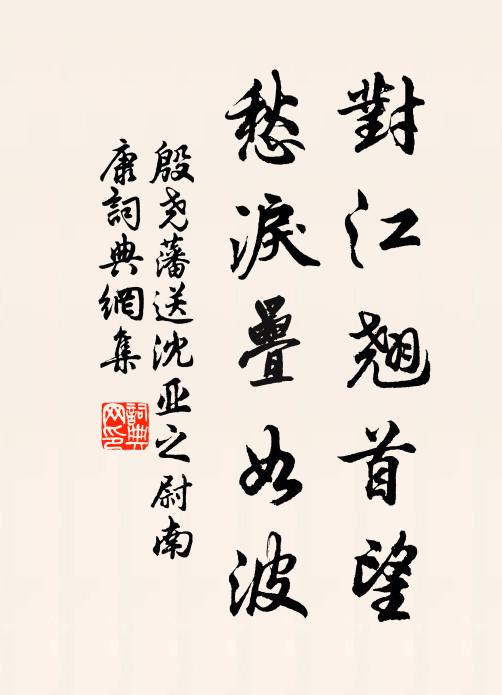 對江翹首望
愁淚疊如波
殷尧藩送沈亚之尉南
康詞典網集
詞典
网印